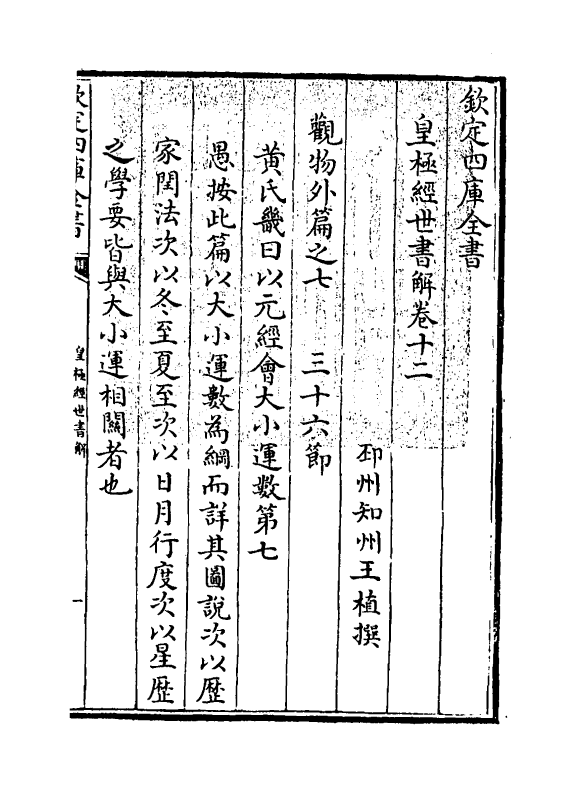 欽定四庫全書
皇極經世書解卷十二
邳州知州王植撰
觀物外篇之七　三十六節
黃氏畿曰以元經會大小運數第七
愚按此篇以大小運數為綱而詳其圖說次以歷
家閏法次以冬至夏至次以日月行度次以星歷
之學要皆與大小運相關者也
欽定四庫全書
皇極經世書解
一